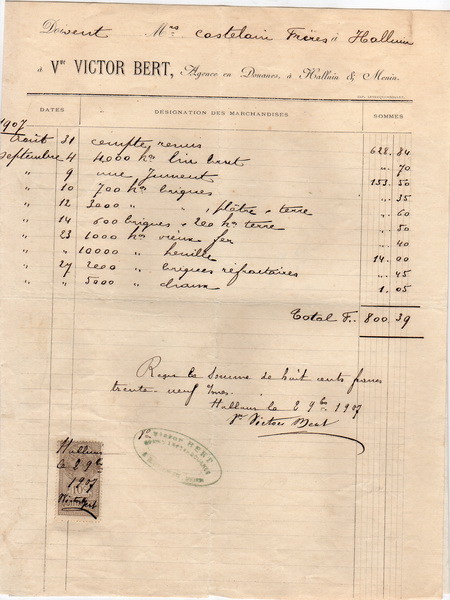 Doivent Mrs Castelain Frères à Halluin
à Vve VICTOR BERT, Agence en Douanes, à Halluin & Menin.
DATES DÉSIGNATION DES MARCHANDISES SOMMES
1907
Août 31 compte remis 628.84
Septembre 4 4000 ks lin brut " 70
" 9 une jument 153.50
" 10 700 ks briques " 35
" 12 3000 " " , plâtre & terre " 60
" 14 600 briques & 200 ks terre " 50
" 23 1000 ks vieux fer " 40
" " 10000 " houille 14.00
" 27 2000 " briques réfractaires " 45
" " 5000 " drains 1.05
Total F.. 800.39
Reçu la somme de huit cents francs
trente-neuf cmes.
Halluin le 8 9bre 1907
Vve Victor Bert
Halluin
le 8 9bre
1907
10
Victor Bert
BERT